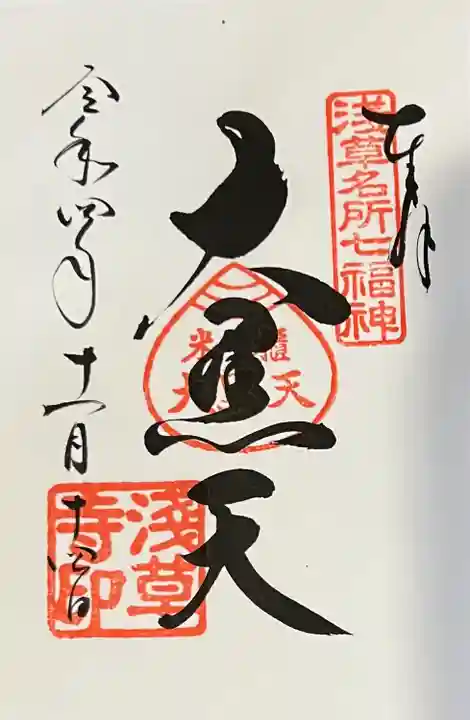 奉拝
浅草名所七福神
大黒天
米櫃
大黒天
令和四年十一月十四日
浅草
寺印